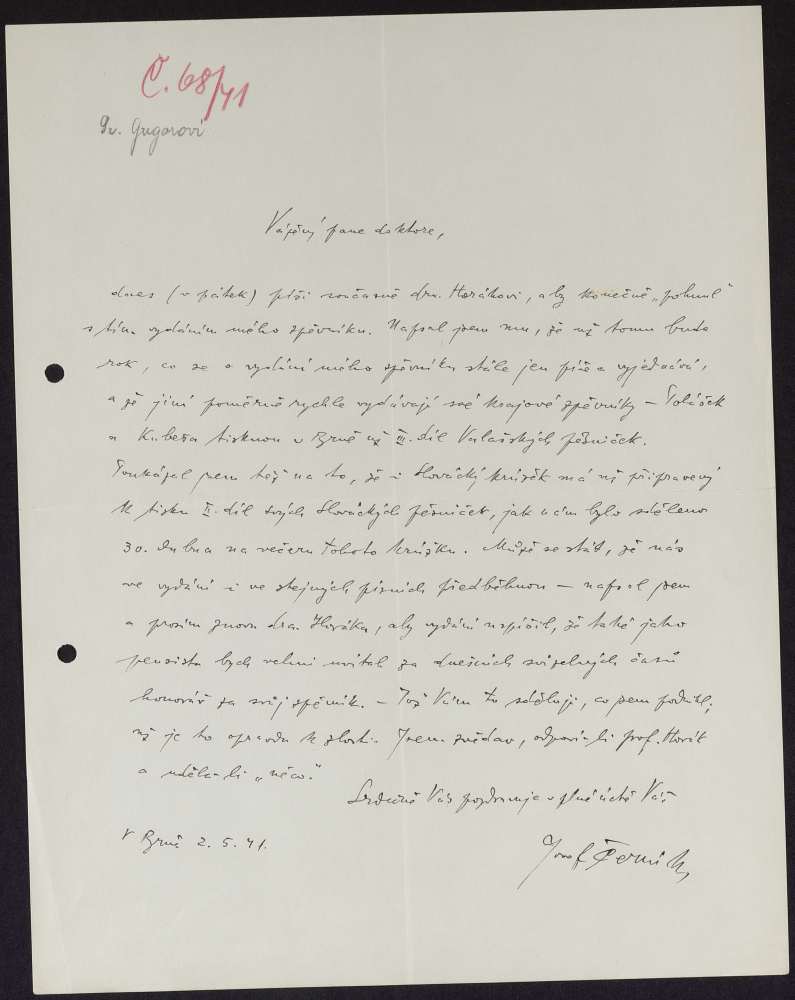 Č. 68/41
Gregorovi
Vážený pane doktore,
dnes (v pátek) píši současně dru. Horákovi, aby konečně „pohnul“
s tím vydáním mého zpěvníku. Napsal jsem mu, že už tomu bude
rok, co se o vydání mého zpěvníku stále jen píše a vyjednává,
a že jiní poměrně rychle vydávají své krajové zpěvníky – Poláček
a Kubeša tisknou v Brně už III. díl Valašských pěsniček.
Poukázal jsem též na to, že i Slovácký krúžek má už připravený
k tisku II. díl svých Slováckých pěsniček, jak nám bylo sděleno
30. dubna na večeru tohoto krúžku. Může se stát, že nás
ve vydání i ve stejných písních předběhnou – napsal jsem
a prosím znovu dra. Horáka, aby vydání uspíšil, že také jako
pensista bych velmi uvítal za dnešních svízelných časů
honorář za svůj zpěvník. – Tož Vám to sděluji, co jsem podnikl;
už je to opravdu k zlosti. Jsem zvědav, odpoví-li prof. Horák
a udělá-li „něco“.
Srdečně Vás pozdravuje v plné úctě Váš
V Brně 2. 5. 41.
Josef Černík,